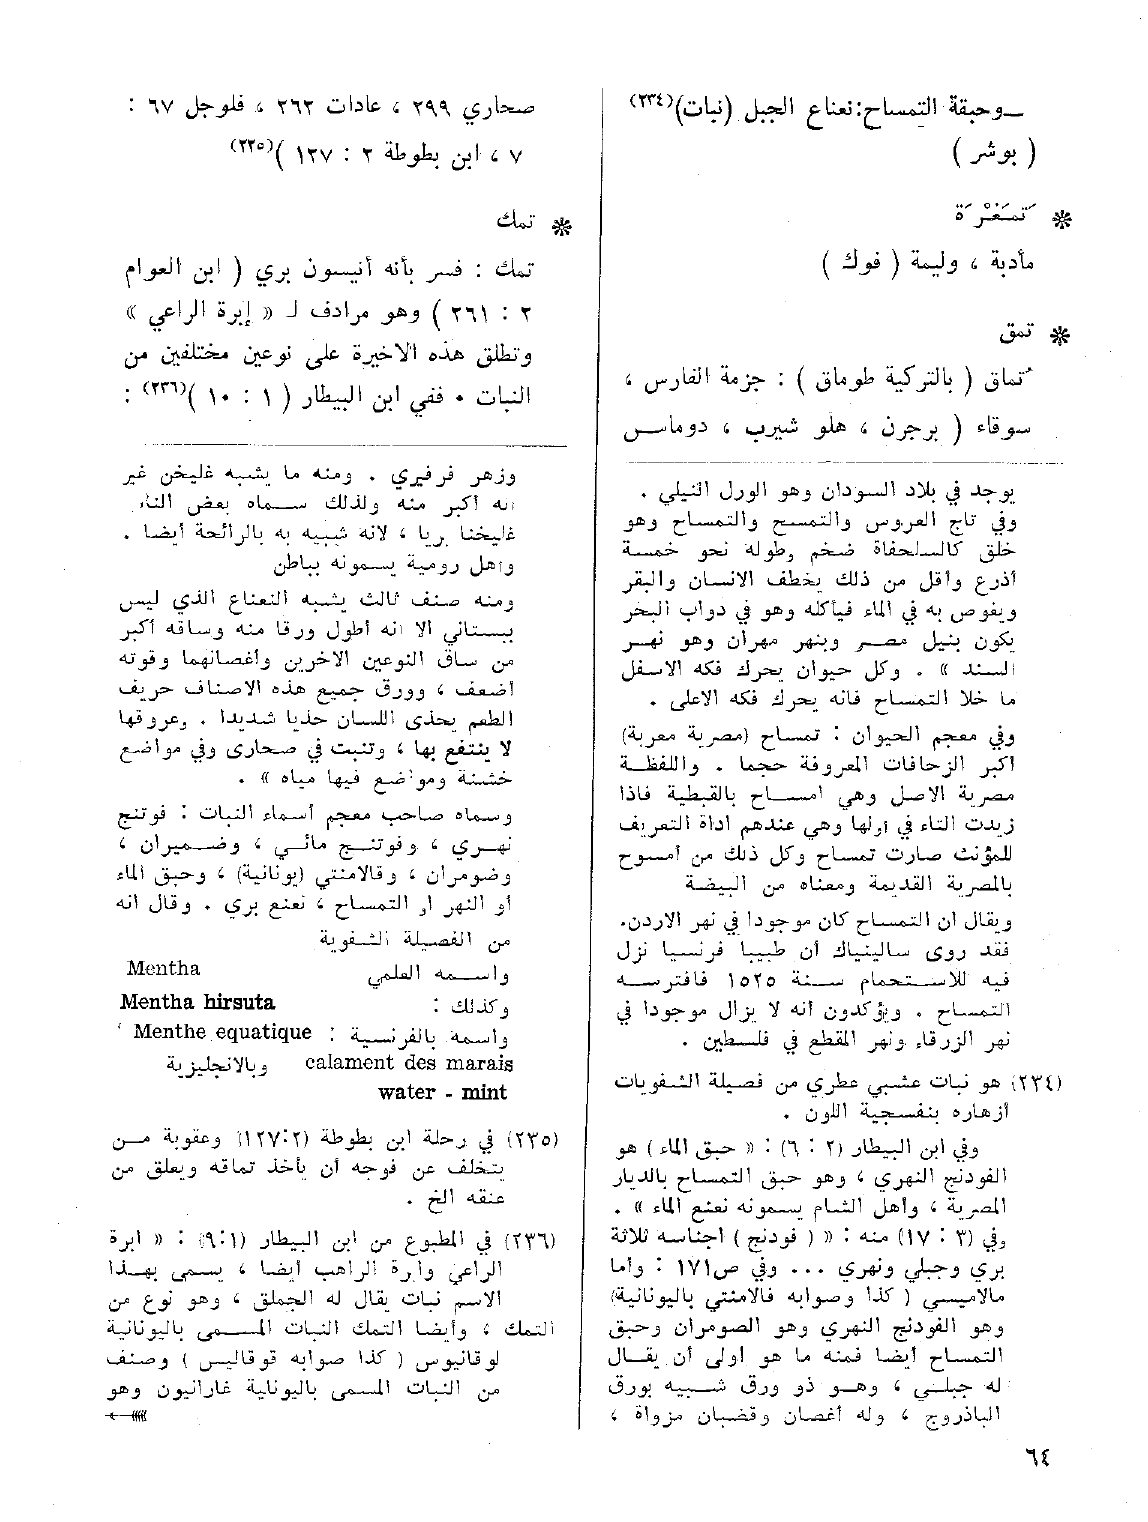 ــ وحبقة التمساح: نعناع الجبل (نبات)(٢٣٤)
( بوشر )
* تَمَغْرَة
مأدبة ، وليمة ( فوك )
* تمق
تماق ( بالتركية طوماق ) : جزمة الفارس ،
سوقاء ( برجرن ، هلو شيرب ، دوماس
صحاري ٢٩٩ ، عادات ٢٦٢ ، فلوجل ٦٧ :
٧ ، ابن بطوطة ٢ : ١٢٧ )(٢٣٥)
* تمك
تمك : فسر بأنه أنيسون بري ( ابن العوام
٢ : ٢٦١ ) وهو مرادف لـ « إبرة الراعي »
وتطلق هذه الاخيرة على نوعين مختلفين من
النبات . ففي ابن البيطار ( ١ : ١٠ )(٢٣٦) :
يوجد في بلاد السودان وهو الورل النيلي .
وفي تاج العروس والتمسح والتمساح وهو
خلق كالسلحفاة ضخم وطوله نحو خمسة
أذرع وأقل من ذلك يخطف الانسان والبقر
ويغوص به في الماء فيأكله وهو في دواب البحر
يكون بنيل مصر وبنهر مهران وهو نهر
السند » . وكل حيوان يحرك فكه الاسفل
ما خلا التمساح فانه يحرك فكه الاعلى .
وفي معجم الحيوان : تمساح (مصرية معربة)
أكبر الزحافات المعروفة حجما . واللفظة
مصرية الاصل وهي امساح بالقبطية فاذا
زيدت التاء في اولها وهي عندهم اداة التعريف
للمؤنث صارت تمساح وكل ذلك من أمسوح
بالمصرية القديمة ومعناه من البيضة
ويقال ان التمساح كان موجودا في نهر الاردن.
فقد روى سالينياك أن طبيبا فرنسيا نزل
فيه للاستحمام سنة ١٥٢٥ فافترسه
التمساح . ويؤكدون انه لا يزال موجودا في
نهر الزرقاء ونهر المقطع في فلسطين .
(٢٣٤) هو نبات عشبي عطري من فصيلة الشفويات
أزهاره بنفسجية اللون .
وفي ابن البيطار (٢ : ٦) : « حبق الماء ) هو
الفودنج النهري ، وهو حبق التمساح بالديار
المصرية ، وأهل الشام يسمونه نعنع الماء » .
وفي (٣ : ١٧) منه : « ( فودنج ) أجناسه ثلاثة
بري وجبلي ونهري ... وفي ص١٧١ : وأما
مالاميسي ( كذا وصوابه فالامنتي باليونانية)
وهو الفودنج النهري وهو الصومران وحبق
التمساح أيضا فمنه ما هو أولى أن يقال
له جبلي ، وهو ذو ورق شبيه بورق
الباذروج ، وله أغصان وقضبان مزواة ،
وزهر فرفيري . ومنه ما يشبه غليخن غير
انه أكبر منه ولذلك سماه بعض الناس
غليخنا بريا ، لانه شبيه به بالرائحة أيضا .
واهل رومية يسمونه بباطن
ومنه صنف ثالث يشبه النعناع الذي ليس
ببستاني الا انه أطول ورقا منه وساقه أكبر
من ساق النوعين الاخرين وأغصانهما وقوته
أضعف ، وورق جميع هذه الاصناف حريف
الطعم يحذى اللسان حذيا شديدا . وعروقها
لا ينتفع بها ، وتنبت في صحارى وفي مواضع
خشنة ومواضع فيها مياه » .
وسماه صاحب معجم أسماء النبات : فوتنج
نهري ، وفوتنج مائي ، وضميران ،
وضومران ، وقالامنتي (يونانية) ، وحبق الماء
أو النهر او التمساح ، نعنع بري . وقال انه
من الفصيلة الشفوية
واسمه العلمي Mentha
وكذلك : Mentha hirsuta
واسمه بالفرنسية : Menthe equatique
calament des marais وبالانجليزية
water - mint
(٢٣٥) في رحلة ابن بطوطة (٢:١٢٧) وعقوبة من
يتخلف عن فوجه أن يأخذ تماقه ويعلق من
عنقه الخ .
(٢٣٦) في المطبوع من ابن البيطار (٩:١) : « ابرة
الراعي وابرة الراهب أيضا ، يسمى بهذا
الاسم نبات يقال له الجملق ، وهو نوع من
التمك ، وأيضا التمك النبات المسمى باليونانية
لوقانيوس ( كذا صوابه قوقاليس ) وصنف
من النبات المسمى باليوناية غارانيون وهو
٦٤